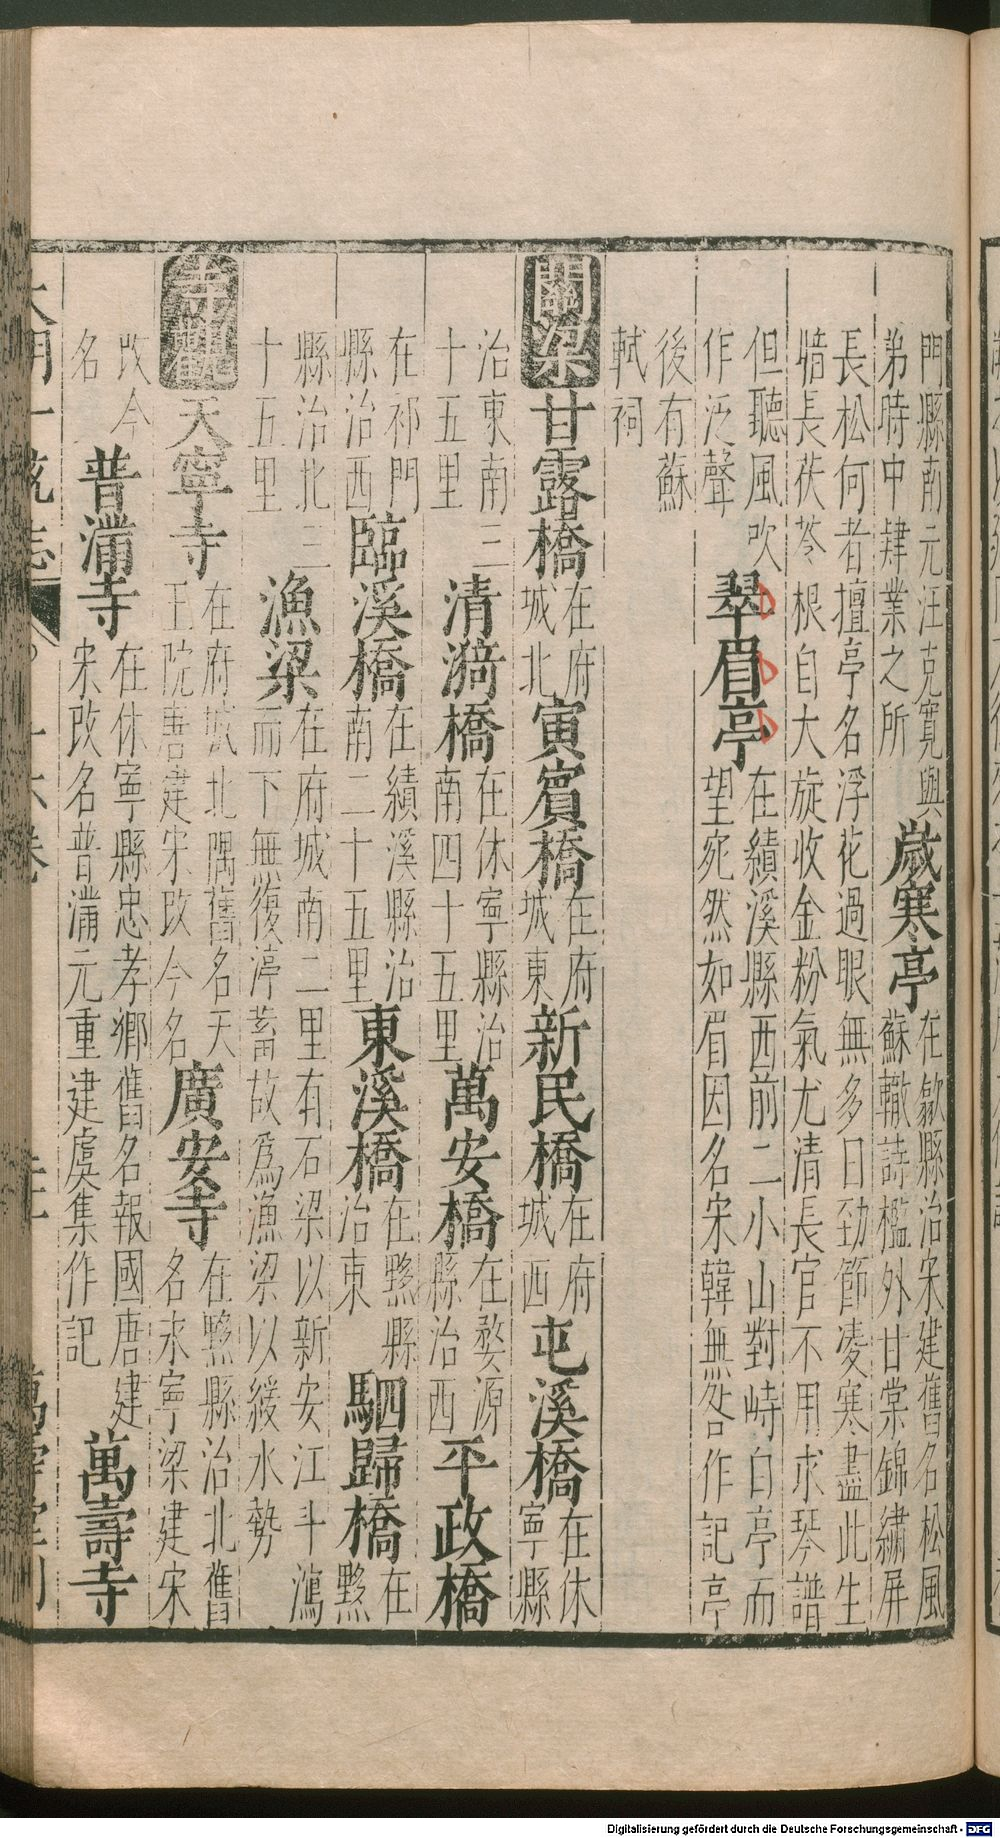 門縣南元汪克寬與
弟時中肄業之所
歲寒亭
在歙縣治宋建舊名松風
蘇轍詩檻外甘棠錦繡屏
長松何者擅亭名浮花過眼無多日勁節凌寒盡此生
牆長茯苓根自大旋收金粉氣尤清長官不用求琴譜
但聽風吹
作泛聲
翠眉亭
在績溪縣西前二小山對峙白亭而
望宛然如眉因名宋韓無咎作記亭
後有蘇
軾祠
關梁
甘露橋
在府
城北
寅賓橋
在府
城東
新民橋
在府
城西
屯溪橋
在休
寧縣
治東南三
十五里
清漪橋
在休寧縣治
南四十五里
萬安橋
在婺源
縣治西
平政橋
在祁門
縣治西
臨溪橋
在績溪縣治
南二十五里
東溪橋
在黟縣
治東
駟歸橋
在
黟
縣治北三
十五里
漁梁
在府城南二里有石梁以新安江斗瀉
而下無復渟蓄故爲漁梁以緩水勢
寺觀
天寧寺
在府城北隅舊名天
王院唐建宋改今名
廣安寺
在黟縣治北舊
名永寧梁建宋
改今
名
普滿寺
在休寧縣忠孝鄉舊名報國唐建
宋改名普滿元重建虞集作記
萬壽寺
大明一統志
十六卷
萬壽堂刊
Digitalisierung gefördert durch die Deutsche Forschungsgemeinschaft - DFG